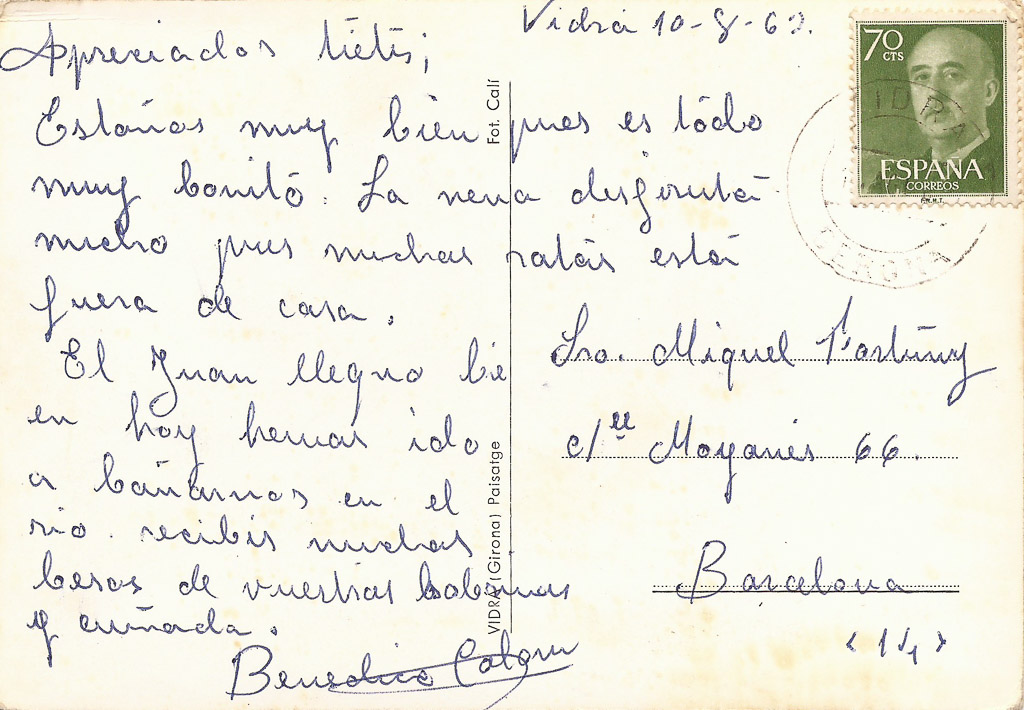 Vidrá 10-8-69.
Apreciados tietis;
Estános muy bien pues es tódo
muy bonitó. La nena desfrutá
mucho pues muchas ratás está
fuera de casa.
El Juan llegno bie
en hoy hemas ido
a bañarnos en el
rio. recibis muchas
besos de vuestras sobrinas
y cuñada.
Benedicta Colom
Fot. Calí
VIDRÁ (Girona) Paisatge
70 CTS
ESPAÑA
CORREOS
F.N.M.T.
VIDRA
GERONA
Sro. Miquel Fortúny
c/ee Moyanés 66.
Barcelona
<14>